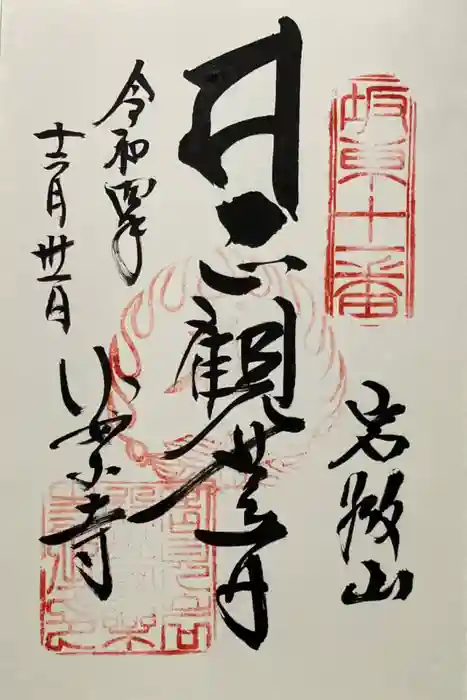 坂東十一番
岩殿山
正觀世音
令和四年
十二月卅一日
安楽寺